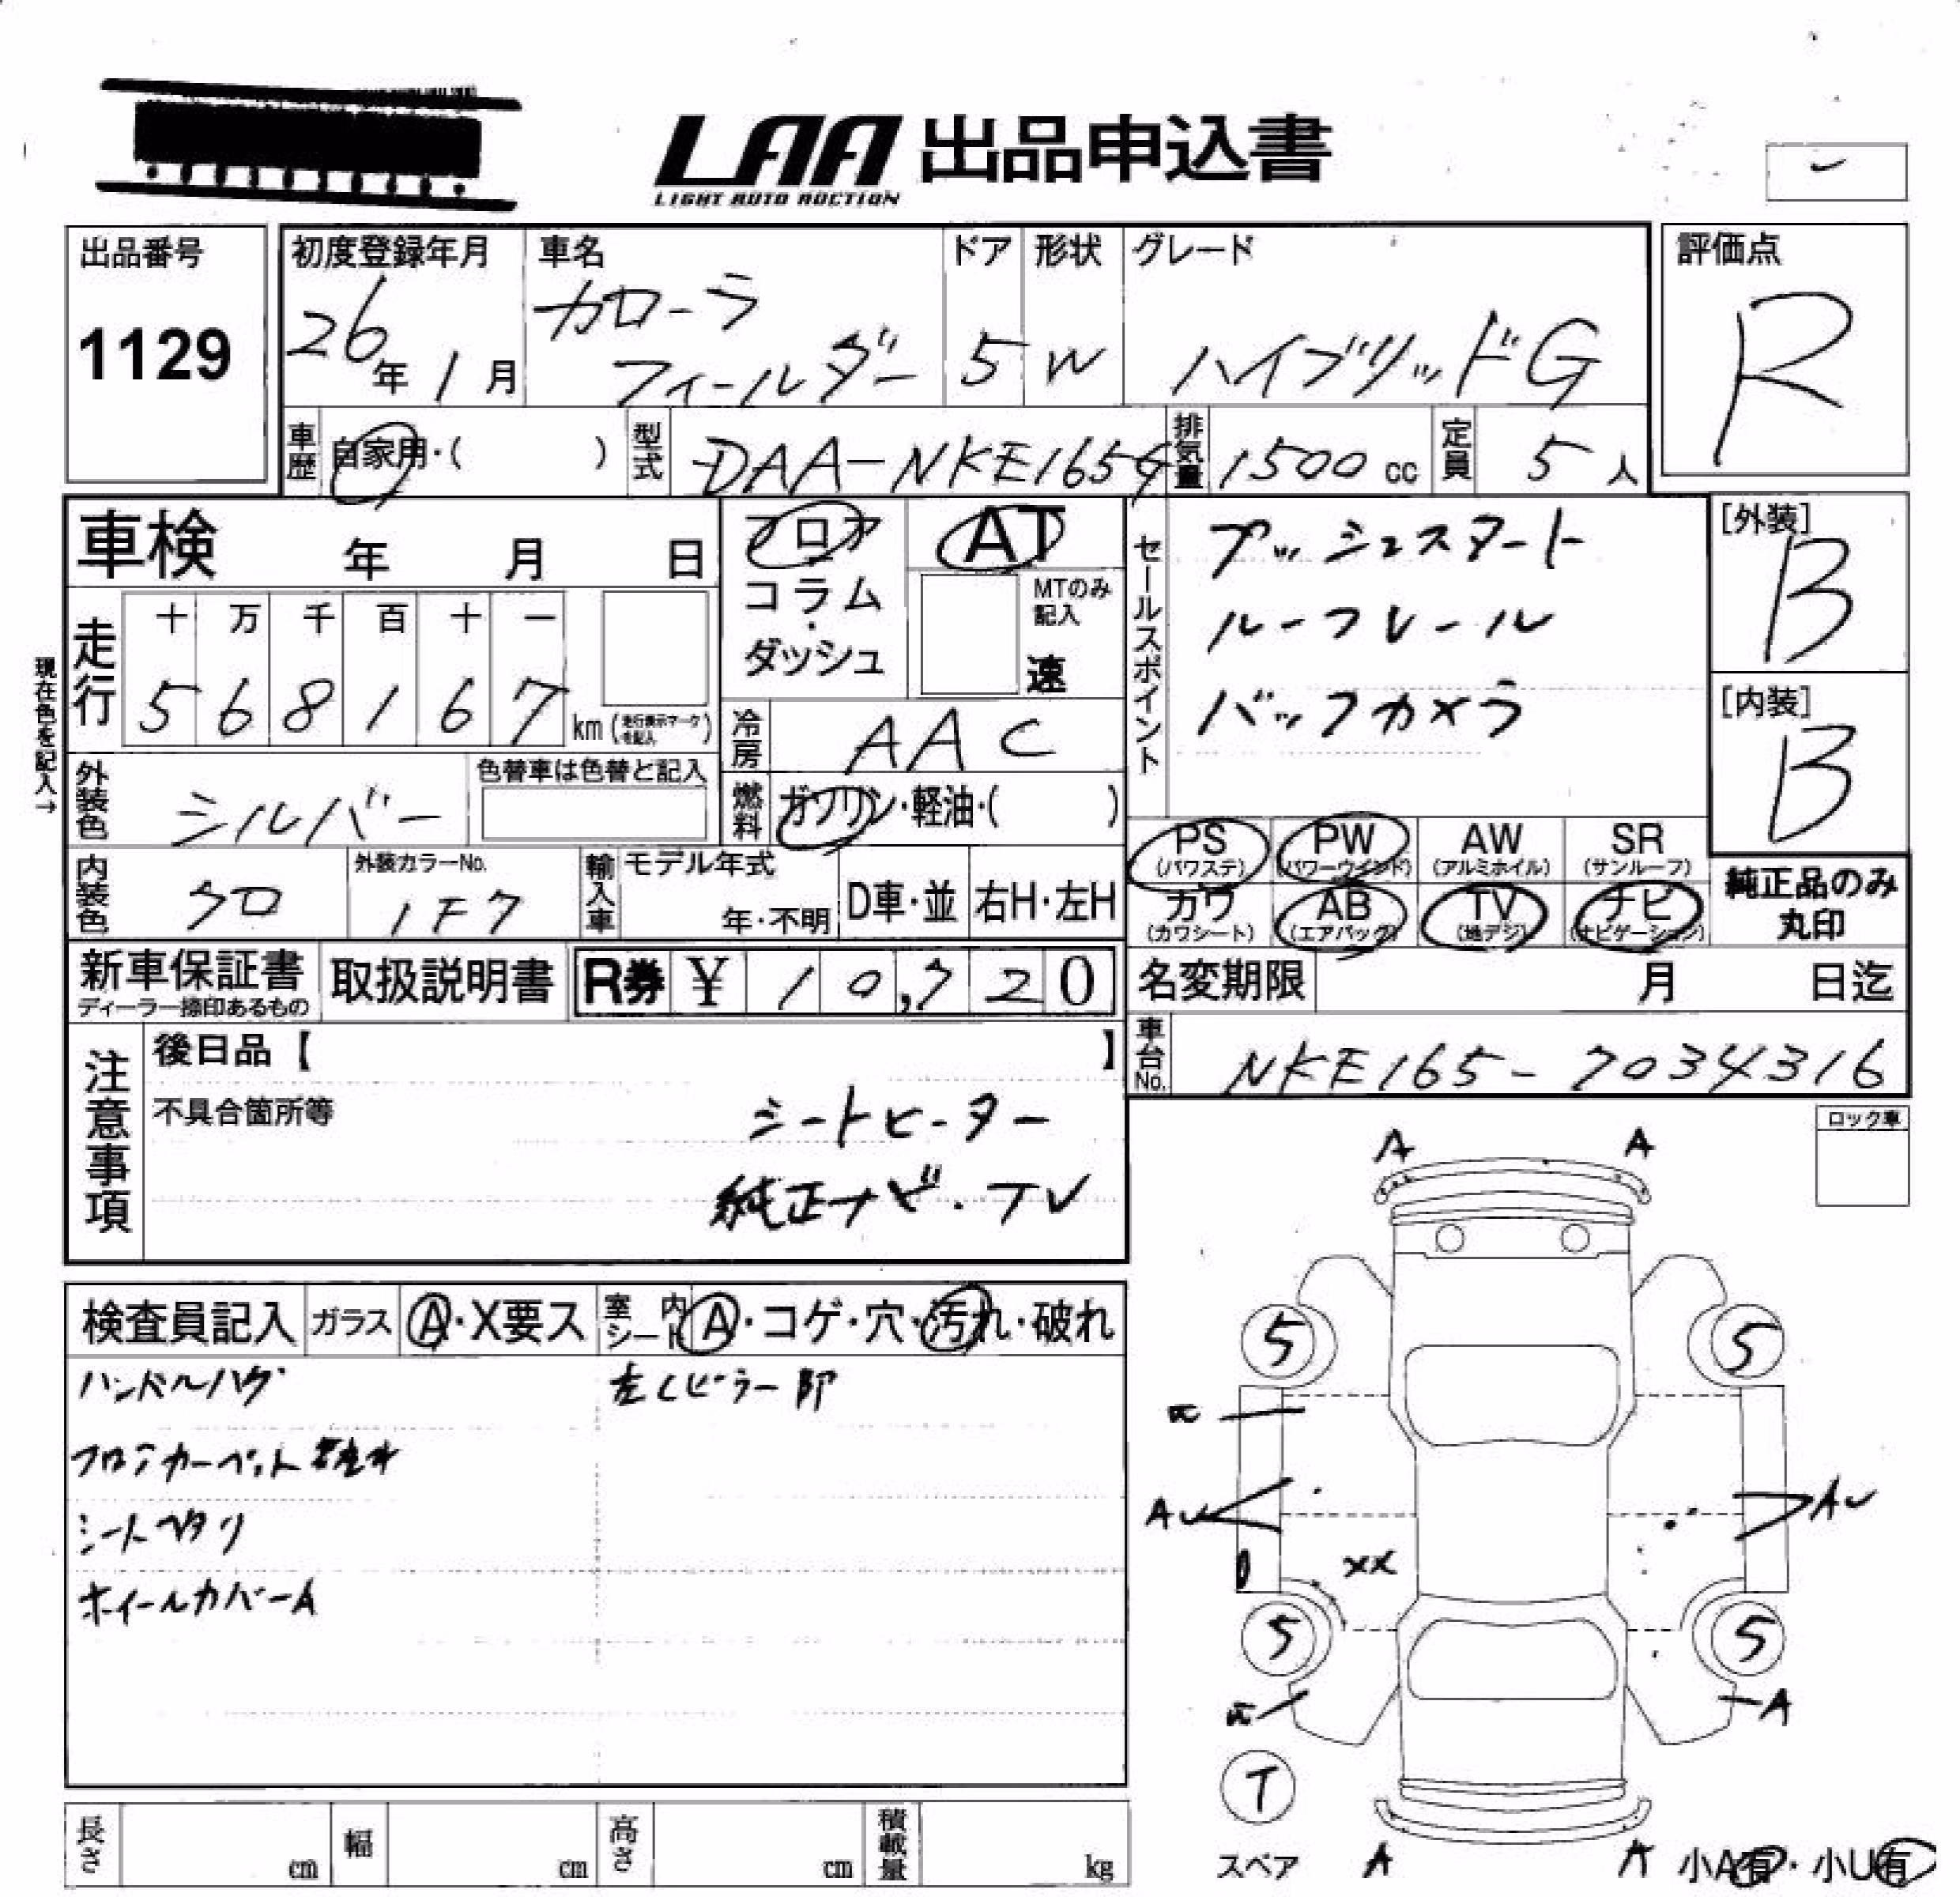 LAA 出品申込書
LIGHT AUTO AUCTION
出品番号
1129
初度登録年月
26年 1月
車名
カローラ
フィールダー
ドア
5
形状
W
グレード
ハイブリッドG
評価点
R
車歴 自家用・( )
型式 DAA-NKE165G
排気量 1500 cc
定員 5 人
車検 年 月 日
フロア
コラム
・
ダッシュ
AT
MTのみ
記入
速
セールスポイント
プッシュスタート
ルーフレール
バックカメラ
[外装]
B
[内装]
B
現在色を記入→
走行
十 万 千 百 十 一
5 6 8 1 6 7 km (走行表示マークを記入)
冷房 AAC
外装色 シルバー
色替車は色替と記入
燃料 ガソリン・軽油・( )
PS (パワステ)
PW (パワーウインド)
AW (アルミホイル)
SR (サンルーフ)
カワ (カワシート)
AB (エアバック)
TV (地デジ)
ナビ (ナビゲーション)
純正品のみ
丸印
内装色 クロ
外装カラーNo.
1F7
輸入車
モデル年式
年・不明
D車・並
右H・左H
新車保証書
ディーラー捺印あるもの
取扱説明書
R券 ¥ 10,720
名変期限 月 日迄
車台No. NKE165-7034316
注意事項
後日品【 】
不具合箇所等
シートヒーター
純正ナビ・TV
ロック車
検査員記入
ガラス A・X要ス
室内シート A・コゲ・穴・汚れ・破れ
ハンドルハゲ
左Cピラー部
フロアカーペット
シートヘタリ
ホイールカバーA
A A
5 5
AU AU
XX
5 5
A
T
スペア
A A
小A有・小U有
長さ cm
幅 cm
高さ cm
積載量 kg